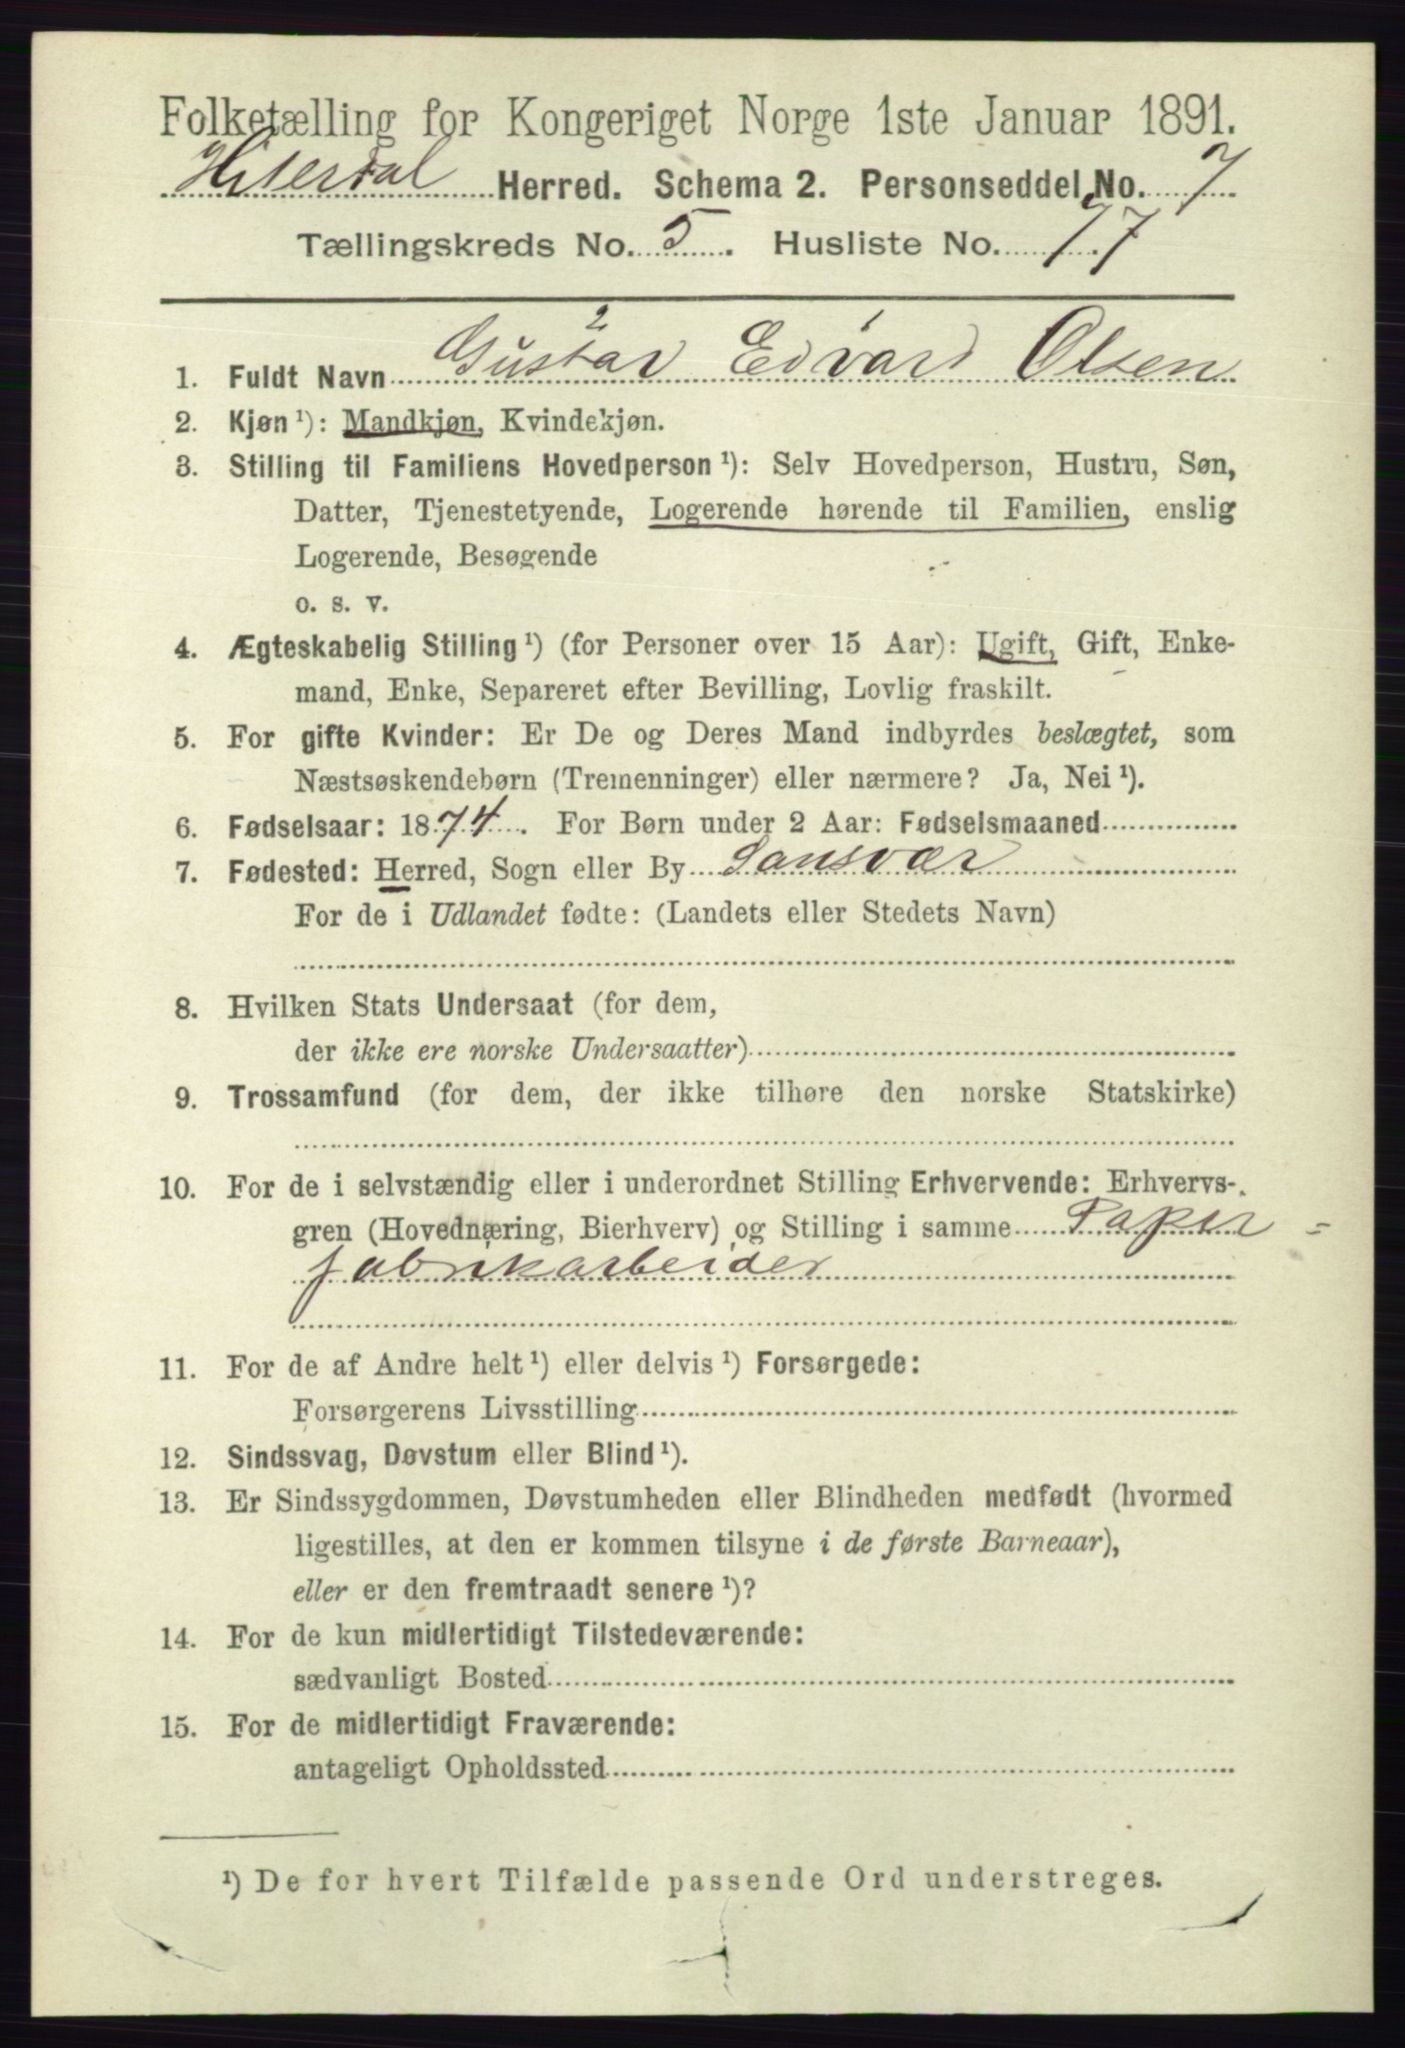 Folketælling for Kongeriget Norge 1ste Januar 1891.
Hiterdal Herred. Schema 2. Personseddel No. 7
Tællingskreds No. 5. Husliste No. 77
2 1
1. Fuldt Navn Gustav Edvard Olsen
2. Kjøn ¹): Mandkjøn, Kvindekjøn.
3. Stilling til Familiens Hovedperson ¹): Selv Hovedperson, Hustru, Søn,
Datter, Tjenestetyende, Logerende hørende til Familien, enslig
Logerende, Besøgende
o. s. v.
4. Ægteskabelig Stilling ¹) (for Personer over 15 Aar): Ugift, Gift, Enke-
mand, Enke, Separeret efter Bevilling, Lovlig fraskilt.
5. For gifte Kvinder: Er De og Deres Mand indbyrdes beslægtet, som
Næstsøskendebørn (Tremenninger) eller nærmere? Ja, Nei ¹).
6. Fødselsaar: 1874. For Børn under 2 Aar: Fødselsmaaned
7. Fødested: Herred, Sogn eller By Sansvær
For de i Udlandet fødte: (Landets eller Stedets Navn)
8. Hvilken Stats Undersaat (for dem,
der ikke ere norske Undersaatter)
9. Trossamfund (for dem, der ikke tilhøre den norske Statskirke)
10. For de i selvstændig eller i underordnet Stilling Erhvervende: Erhvervs-
gren (Hovednæring, Bierhverv) og Stilling i samme Papir=
fabrikarbeider
11. For de af Andre helt ¹) eller delvis ¹) Forsørgede:
Forsørgerens Livsstilling
12. Sindssvag, Døvstum eller Blind ¹).
13. Er Sindssygdommen, Døvstumheden eller Blindheden medfødt (hvormed
ligestilles, at den er kommen tilsyne i de første Barneaar),
eller er den fremtraadt senere ¹)?
14. For de kun midlertidigt Tilstedeværende:
sædvanligt Bosted
15. For de midlertidigt Fraværende:
antageligt Opholdssted
¹) De for hvert Tilfælde passende Ord understreges.